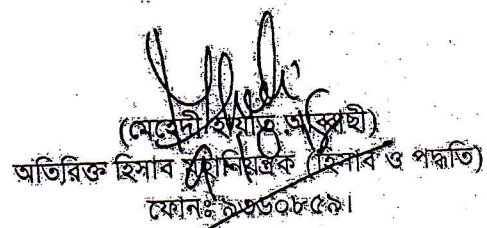 (মেহেদী হায়াত
অতিরিক্ত হিসাব মহানিয়ন্ত্রক (হিসাব ও পদ্ধতি)
ফোনঃ ৯৩৬০৮৫৯।